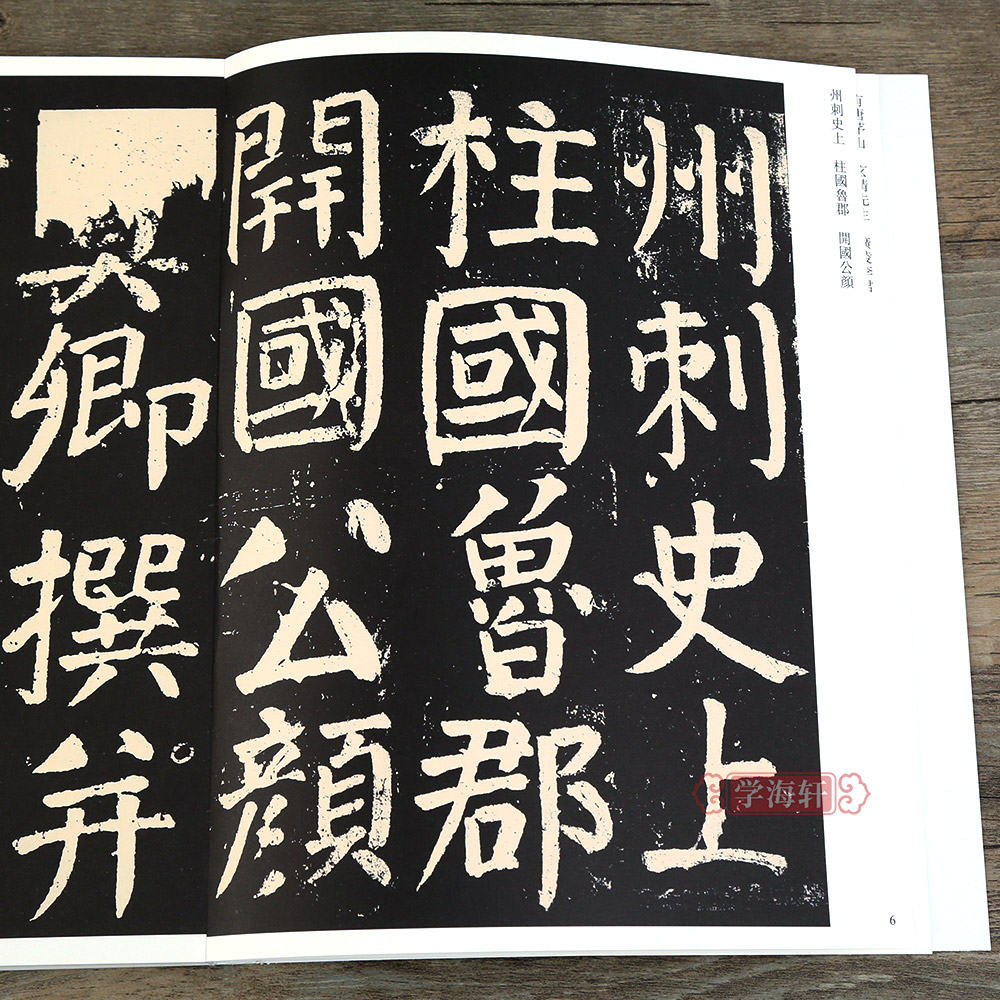 州刺史上
柱國魯郡
開國公顏
真卿撰并
州刺史上 柱國魯郡 開國公顏
学海轩
6